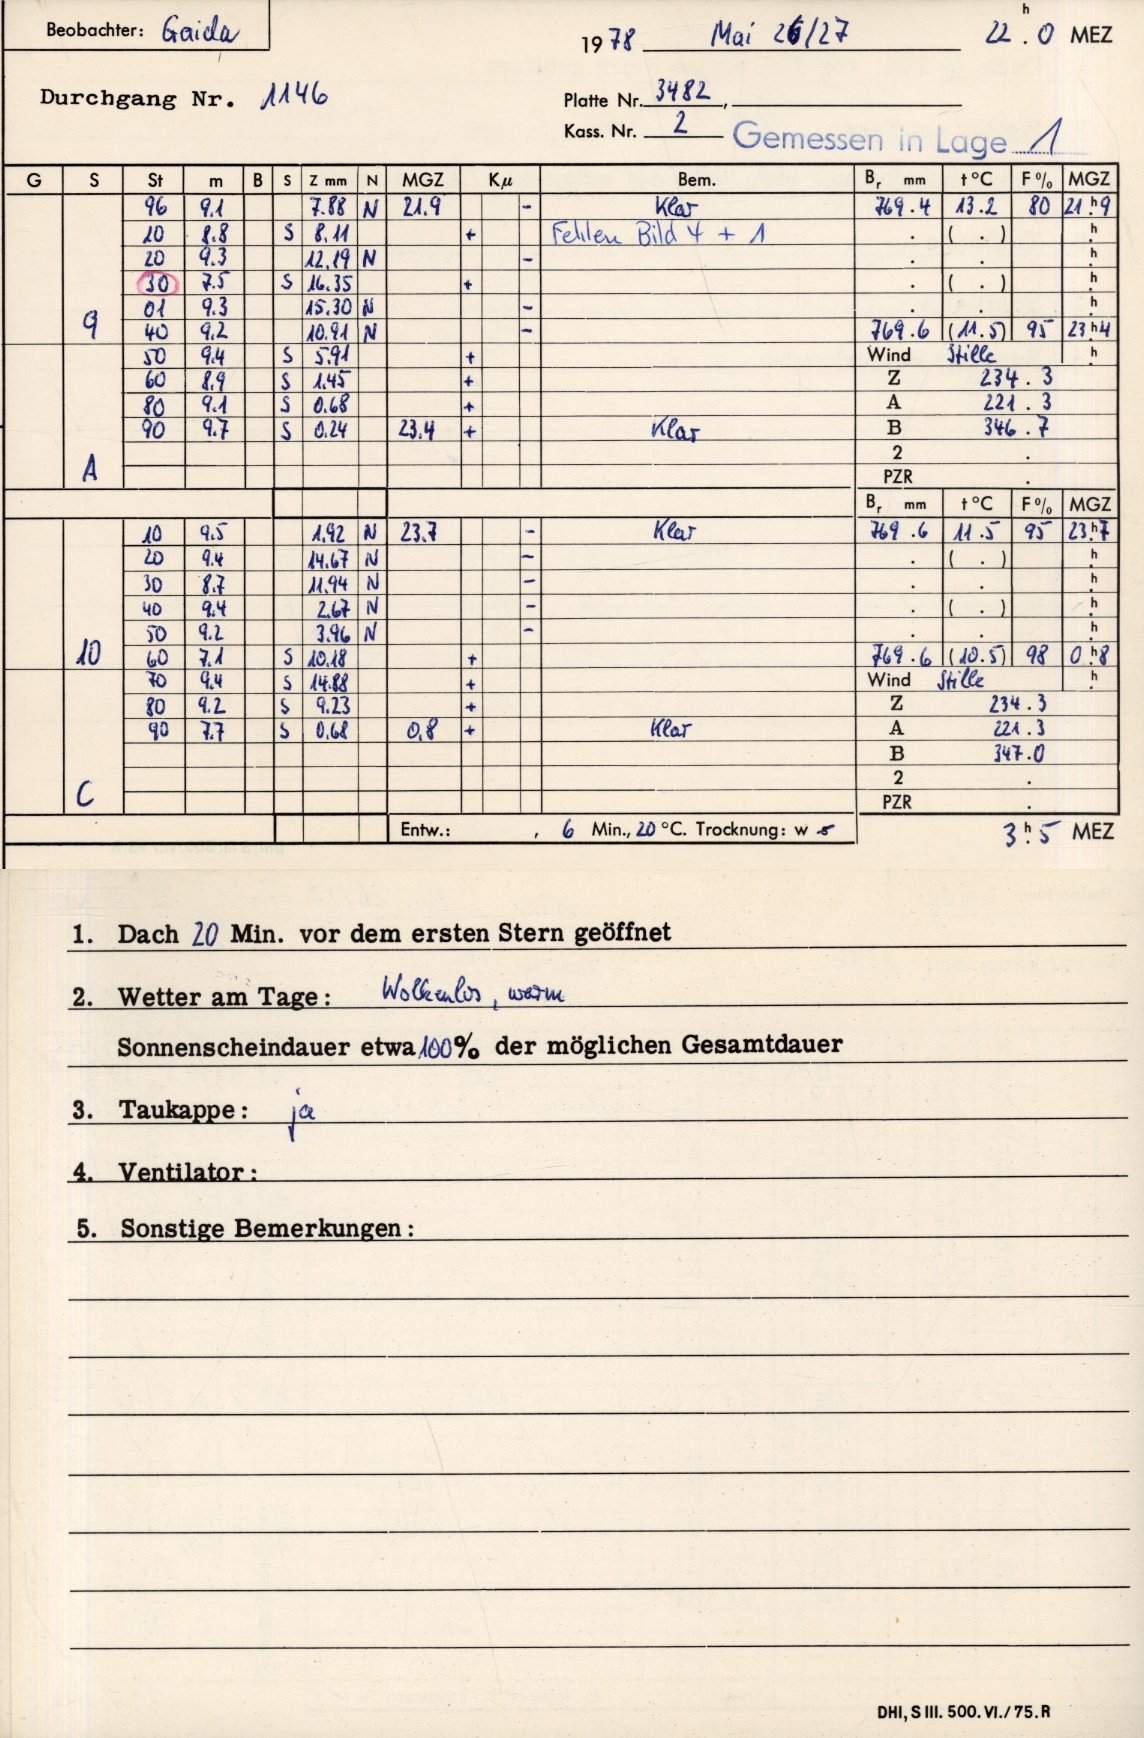 Beobachter: Gaida
1978 Mai 26/27 22.h0 MEZ
Durchgang Nr. 1146
Platte Nr. 3482,
Kass. Nr. 2 Gemessen in Lage 1
G S St m B S Z mm N MGZ Kμ Bem. Br mm t °C F % MGZ
96 9.1 7.88 N 21.9 - Klar 769.4 13.2 80 21.h9
10 8.8 S 8.11 + Fehlen Bild 4 + 1 . ( . ) h
20 9.3 12.19 N - . . h
30 7.5 S 16.35 + . ( . ) h
01 9.3 15.30 N - . . h
9 40 9.2 10.91 N - 769.6 (11.5) 95 23.h4
50 9.4 S 5.91 + Wind Stille h
60 8.9 S 1.45 + Z 234.3
80 9.1 S 0.68 + A 221.3
90 9.7 S 0.24 23.4 + Klar B 346.7
A 2 .
PZR .
Br mm t °C F % MGZ
10 9.5 1.92 N 23.7 - Klar 769.6 11.5 95 23.h7
20 9.4 14.67 N - . ( . ) h
30 8.7 11.94 N - . . h
40 9.4 2.67 N - . ( . ) h
50 9.2 3.96 N - . . h
10 60 7.1 S 10.18 + 769.6 (10.5) 98 0.h8
70 9.4 S 14.88 + Wind Stille h
80 9.2 S 9.23 + Z 234.3
90 7.7 S 0.68 0.8 + Klar A 221.3
B 347.0
C 2 .
PZR .
Entw.: , 6 Min., 20 °C. Trocknung: w s 3.h5 MEZ
1. Dach 20 Min. vor dem ersten Stern geöffnet
2. Wetter am Tage: Wolkenlos, warm
Sonnenscheindauer etwa 100% der möglichen Gesamtdauer
3. Taukappe: ja
4. Ventilator:
5. Sonstige Bemerkungen:
DHI, S III. 500. VI./75. R